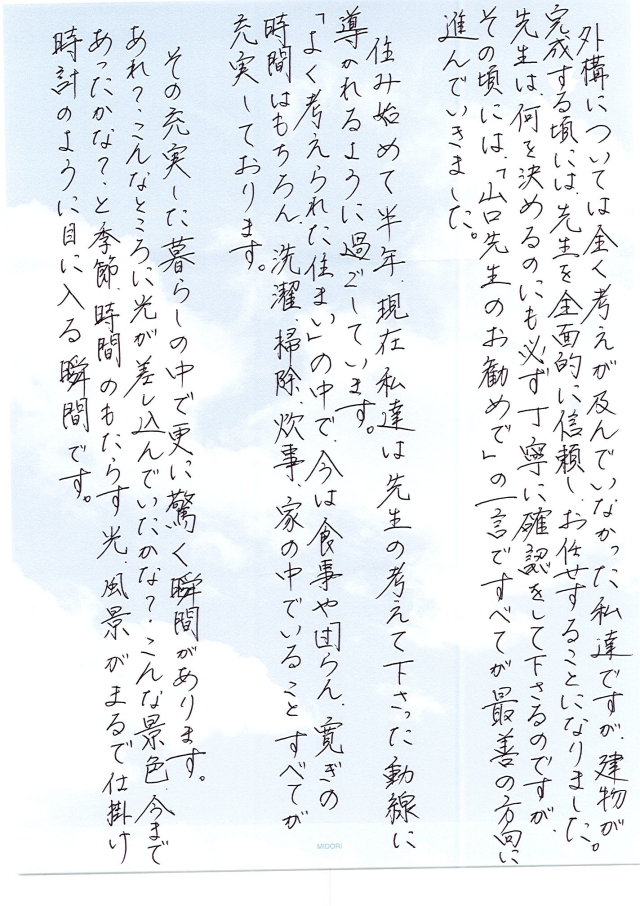 外構については全く考えが及んでいなかった私達ですが、建物が
完成する頃には、先生を全面的に信頼し、お任せすることになりました。
先生は、何を決めるのにも必ず丁寧に確認をして下さるのですが、
その頃には、「山口先生のお勧めで」の一言ですべてが最善の方向に
進んでいきました。
住み始めて半年、現在私達は先生の考えて下さった動線に
導かれるように過ごしています。
「よく考えられた住まい」の中で、今は食事や団らん、寛ぎの
時間はもちろん、洗濯、掃除、炊事、家の中でいることすべてが
充実しております。
その充実した暮らしの中で更に驚く瞬間があります。
あれ？こんなところに光が差し込んでいたかな？こんな景色、今まで
あったかな？と季節、時間のもたらす光、風景がまるで仕掛け
時計のように目に入る瞬間です。
MIDORI